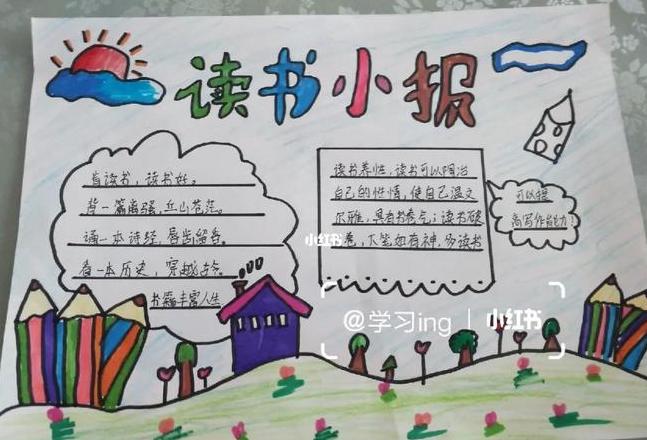 读书小报
读书,读书好。
背一篇离骚,丘山苍茫。
诵一本诗经,唇齿留香。
看一本历史,穿越古今。
书籍丰富人生
读书养性,读书可以陶冶
自己的性情,使自己温文
尔雅,具有书卷气;读书破
卷,下笔如有神,多读书
可以提
高写作能力!
小红书
@学习ing | 小红书